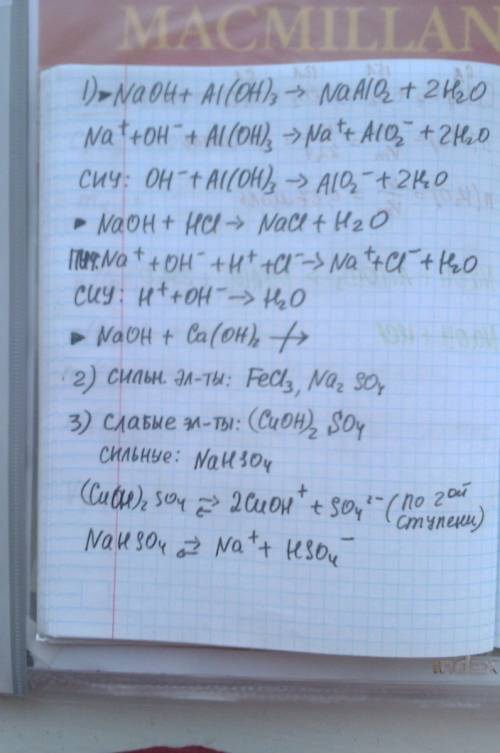 MACMILLAN
1) ▸ NaOH + Al(OH)₃ → NaAlO₂ + 2H₂O
Na⁺ + OH⁻ + Al(OH)₃ → Na⁺ + AlO₂⁻ + 2H₂O
СИУ: OH⁻ + Al(OH)₃ → AlO₂⁻ + 2H₂O
▸ NaOH + HCl → NaCl + H₂O
ПИУ: Na⁺ + OH⁻ + H⁺ + Cl⁻ → Na⁺ + Cl⁻ + H₂O
СИУ: H⁺ + OH⁻ → H₂O
▸ NaOH + Ca(OH)₂ ↛
2) сильн. эл-ты: FeCl₃, Na₂SO₄
3) слабые эл-ты: (CuOH)₂SO₄
сильные: NaHSO₄
(CuOH)₂SO₄ ⇄ 2CuOH⁺ + SO₄²⁻ (по 2ой ступени)
NaHSO₄ ⇄ Na⁺ + HSO₄⁻
index